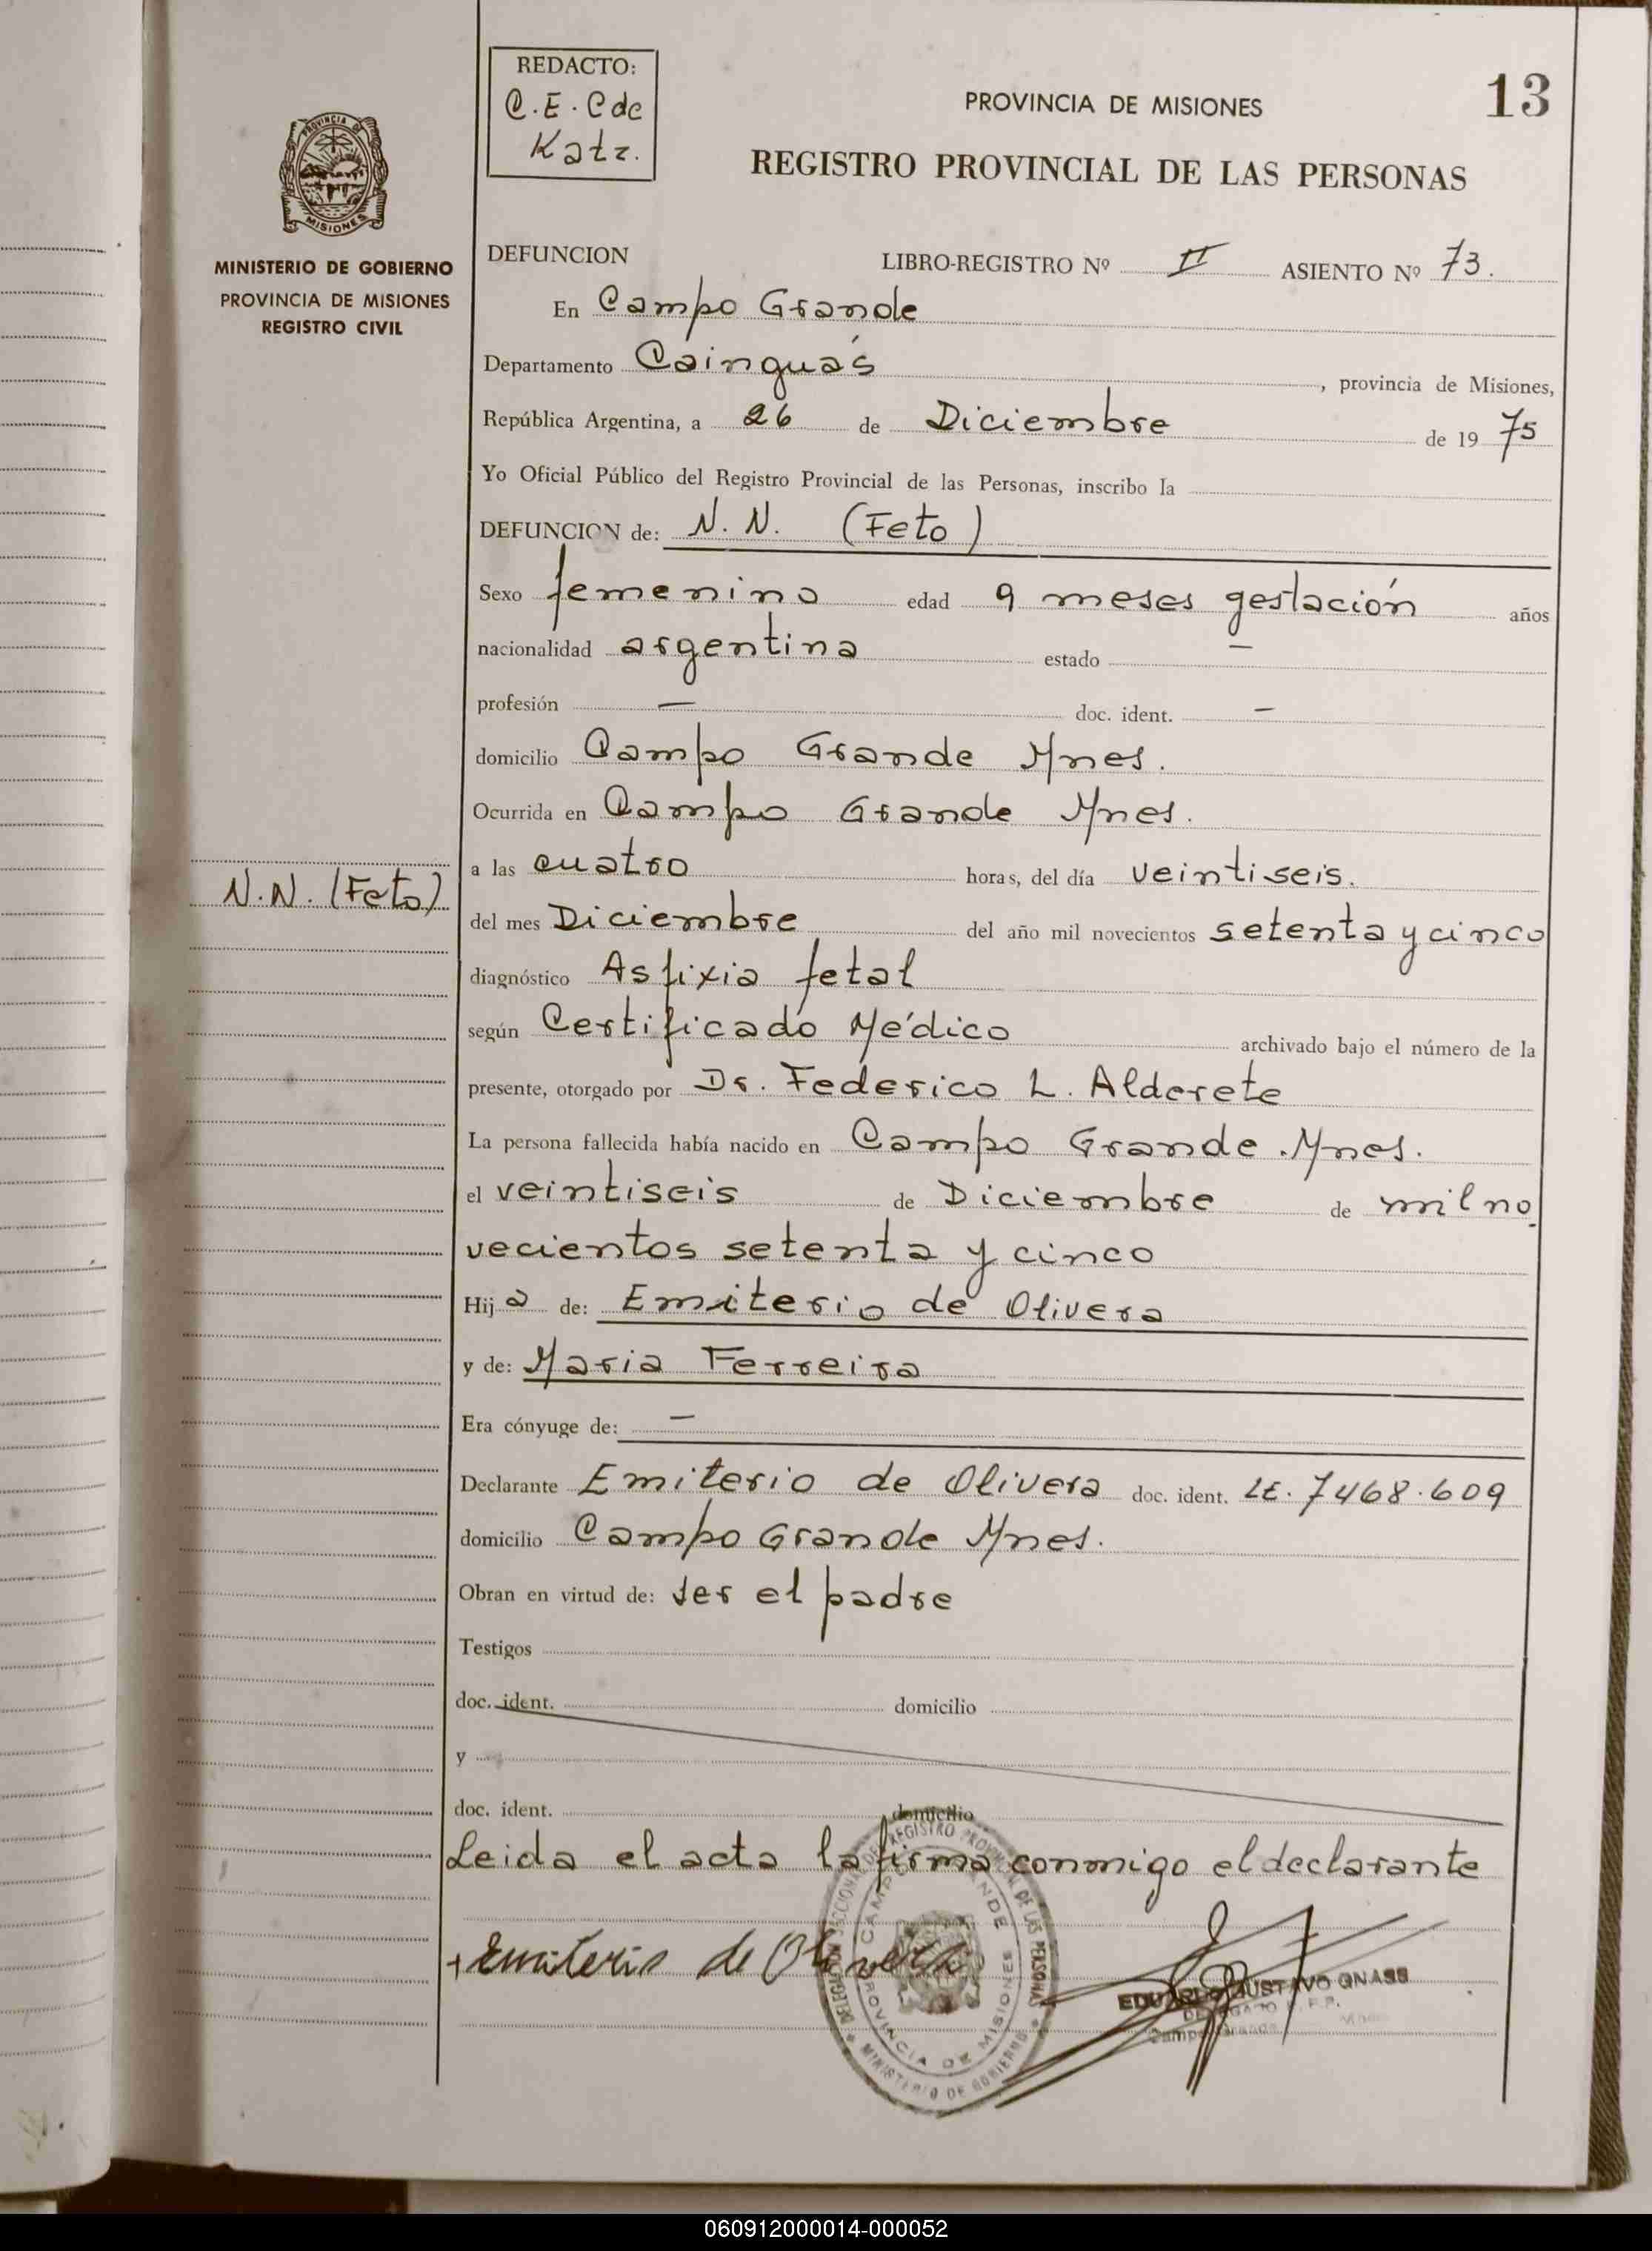 REDACTO:
C.E.C de
Katz.
PROVINCIA DE MISIONES
13
REGISTRO PROVINCIAL DE LAS PERSONAS
PROVINCIA DE
MISIONES
MINISTERIO DE GOBIERNO
PROVINCIA DE MISIONES
REGISTRO CIVIL
DEFUNCION LIBRO-REGISTRO Nº II ASIENTO Nº 73.
En Campo Grande
Departamento Cainguás, provincia de Misiones,
República Argentina, a 26 de Diciembre de 1975
Yo Oficial Público del Registro Provincial de las Personas, inscribo la
DEFUNCION de: N.N. (Feto)
Sexo femenino edad 9 meses gestación años
nacionalidad argentina estado —
profesión — doc. ident. —
domicilio Campo Grande Mnes.
Ocurrida en Campo Grande Mnes.
a las cuatro horas, del día veintiseis.
N.N. (Feto)
del mes Diciembre del año mil novecientos setenta y cinco
diagnóstico Asfixia fetal
según Certificado Médico archivado bajo el número de la
presente, otorgado por Dr. Federico L. Alderete
La persona fallecida había nacido en Campo Grande Mnes.
el veintiseis de Diciembre de mil no
vecientos setenta y cinco
Hija de: Emiterio de Olivera
y de: Maria Ferreira
Era cónyuge de: —
Declarante Emiterio de Olivera doc. ident. LE. 7468.609
domicilio Campo Grande Mnes.
Obran en virtud de: ser el padre
Testigos
doc. ident. domicilio
y
doc. ident. domicilio
Leida el acta la firma conmigo el declarante
Emiterio de Olivera
EDUARDO GUSTAVO GNASS
DELEGADO R. P. P.
Campo Grande
REGISTRO PROVINCIAL DE LAS PERSONAS
CAMPO GRANDE
PROVINCIA DE MISIONES
MINISTERIO DE GOBIERNO
060912000014-000052